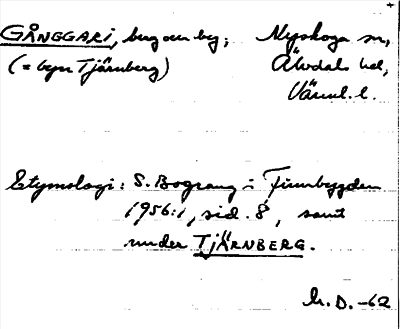 GÅNGGARI, berg och by; Nyskoga sn,
(= byn Tjärnberg) Älvdals hd,
Värml. l.
Etymologi: S. Bograng i Finnbygden
1956:1, sid. 8, samt
under TJÄRNBERG.
h. D. -62